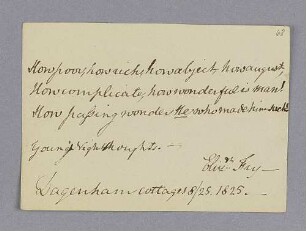 68
How poor, how rich, how abject, how august,
How complicate, how wonderful is man!
How passing wonder He who made him such!
Young's Night thoughts. —
Eliz.th Fry —
Dagenham cottage 8/25. 1825.